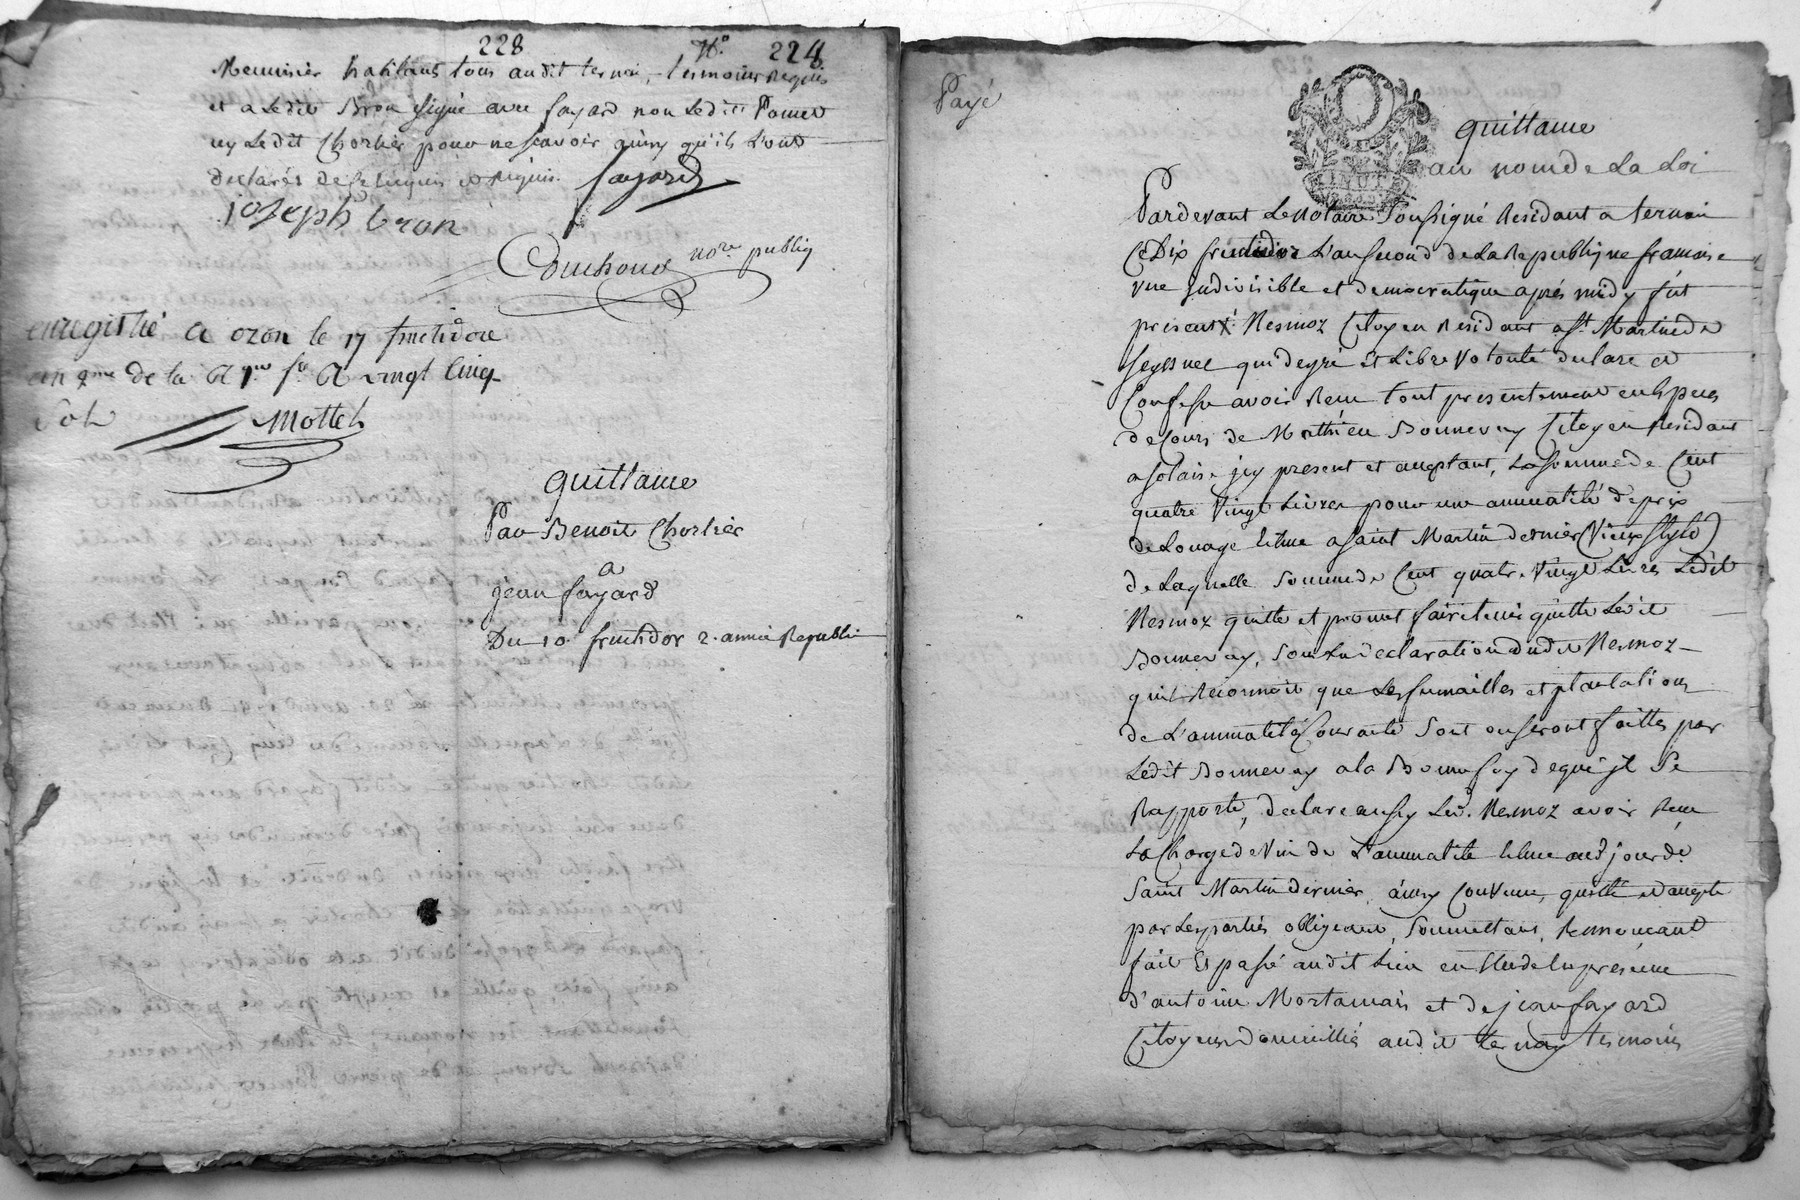 228 N.º 224
Meunisier habitant tous audit ternai, tesmoins requis
et a Ledit Bron signé avec fayard non Ledit Pomer
ny Ledit Chortier pour ne scavoir ainsy qu'ils L'ont
declarés de ce enquis et requis. fayard
joseph bron
nore public
enregistré a ozon le 17 fructidore
an 2me de la R
vingt Cinq
Sols
Mottet
quittance
Par Benoit Chortier
a
jean fayard
Du 10. fructidor 2. année Republi
Payé
quittance
au nom de La Loi
Pardevant Le notaire Soussigné Residant a ternai
Ce Dix fructidor L'an second de La Republique francaise
une Indivisible et democratique aprés midy fut
present Nesmoz Citoyen Residant a St Martin de
seyssuel qui de gré et Libre volonté declare et
Confesse avoir Reçu tout presentement en Especes
de Cours de Mathieu Bonnevay Citoyen Residant
a solaise jcy present et aceptant, La somme de Cent
quatre Vingt Livres pour une annuatité de prix
de Louage Echue a saint Martin dernier (Vieux Stylé)
de Laquelle somme de Cent quatre Vingt Livres Ledit
Nesmoz quitte et promet faire tenir quitte Ledit
Bonnevay, sous La declaration dudit Nesmoz
qui Reconnoit que Les fumailles et plantations
de L'annuatité Courante sont ou seront faittes par
Ledit Bonnevay a la Bonne foy de qui jl Se
Rapporte, declare aussy Led. Nesmoz avoir Reçu
La Charge de Vin de L'annuatité Echue aud jour de
Saint Martin dernier, ainsy Convenu, quitté et accepté
par Les partiés obligeant, Soumettant, Renoncant
fait Et passé audit Lieu en Etude En presence
d'antoine Mortamais et de jean fayard
Citoyens Domicilliés audit ternay tesmoins